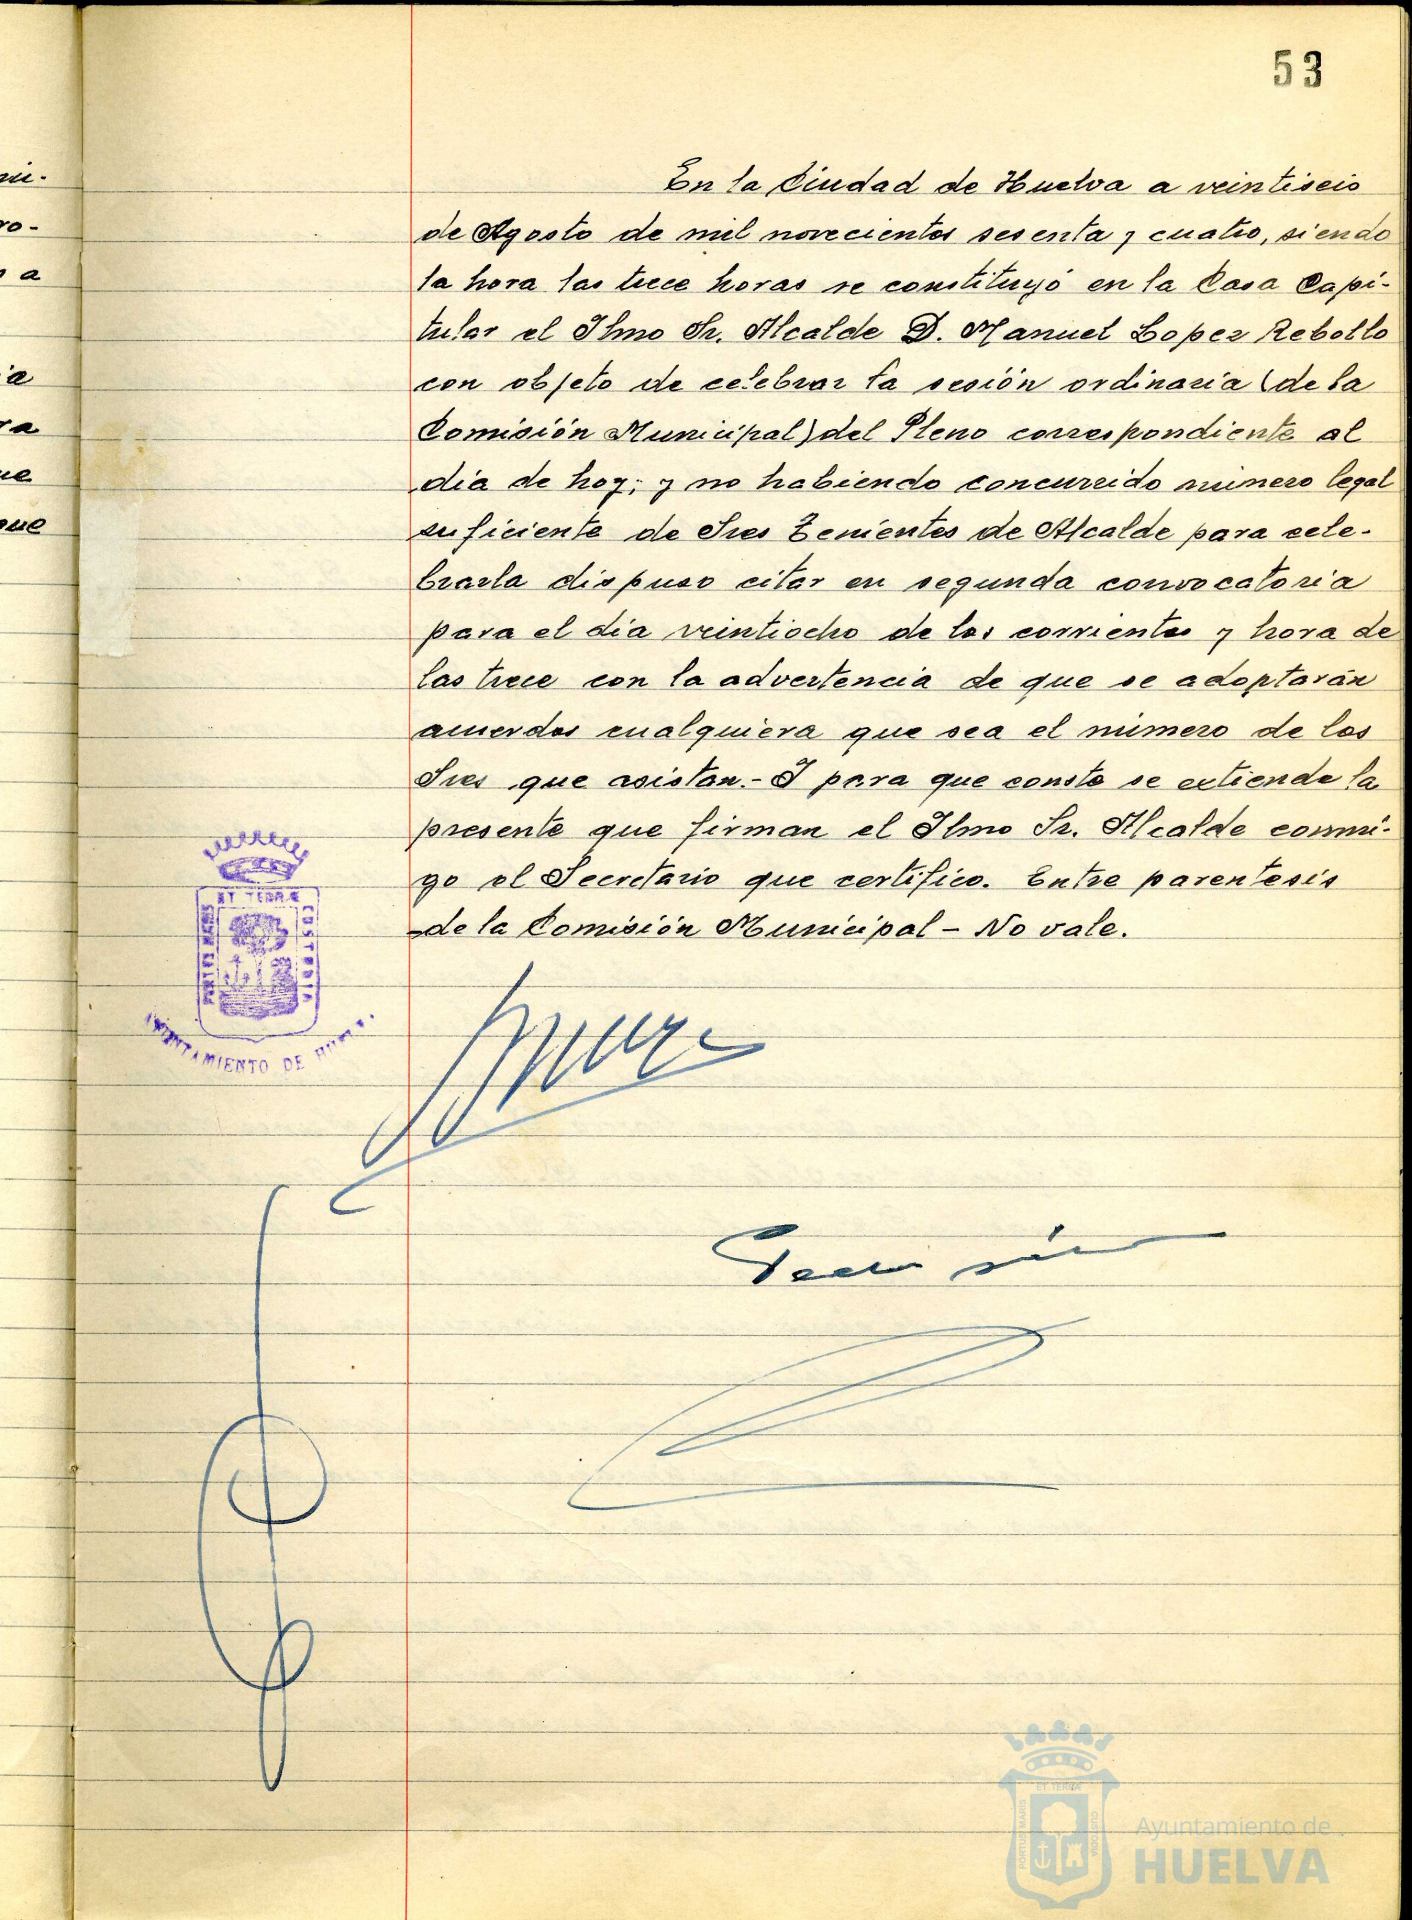 53
En la Ciudad de Huelva a veintiseis
de Agosto de mil novecientos sesenta y cuatro, siendo
la hora las trece horas se constituyó en la Casa Capi-
tular el Ilmo Sr. Alcalde D. Manuel Lopez Rebollo
con objeto de celebrar la sesión ordinaria (de la
Comisión Municipal) del Pleno correspondiente al
día de hoy; y no habiendo concurrido número legal
suficiente de Sres Tenientes de Alcalde para cele-
brarla dispuso citar en segunda convocatoria
para el día veintiocho de los corrientes y hora de
las trece con la advertencia de que se adoptarán
acuerdos cualquiera que sea el número de los
Sres que asistan.- Y para que conste se extiende la
presente que firman el Ilmo Sr. Alcalde conmi-
go el Secretario que certifico. Entre parentesis
-de la Comisión Municipal - No vale.
PORTUS MARIS ET TERRÆ CUSTODIA
AYUNTAMIENTO DE HUELVA
PORTUS MARIS ET TERRÆ CUSTODIA
Ayuntamiento de
HUELVA
ro-
a
ra
ue
que